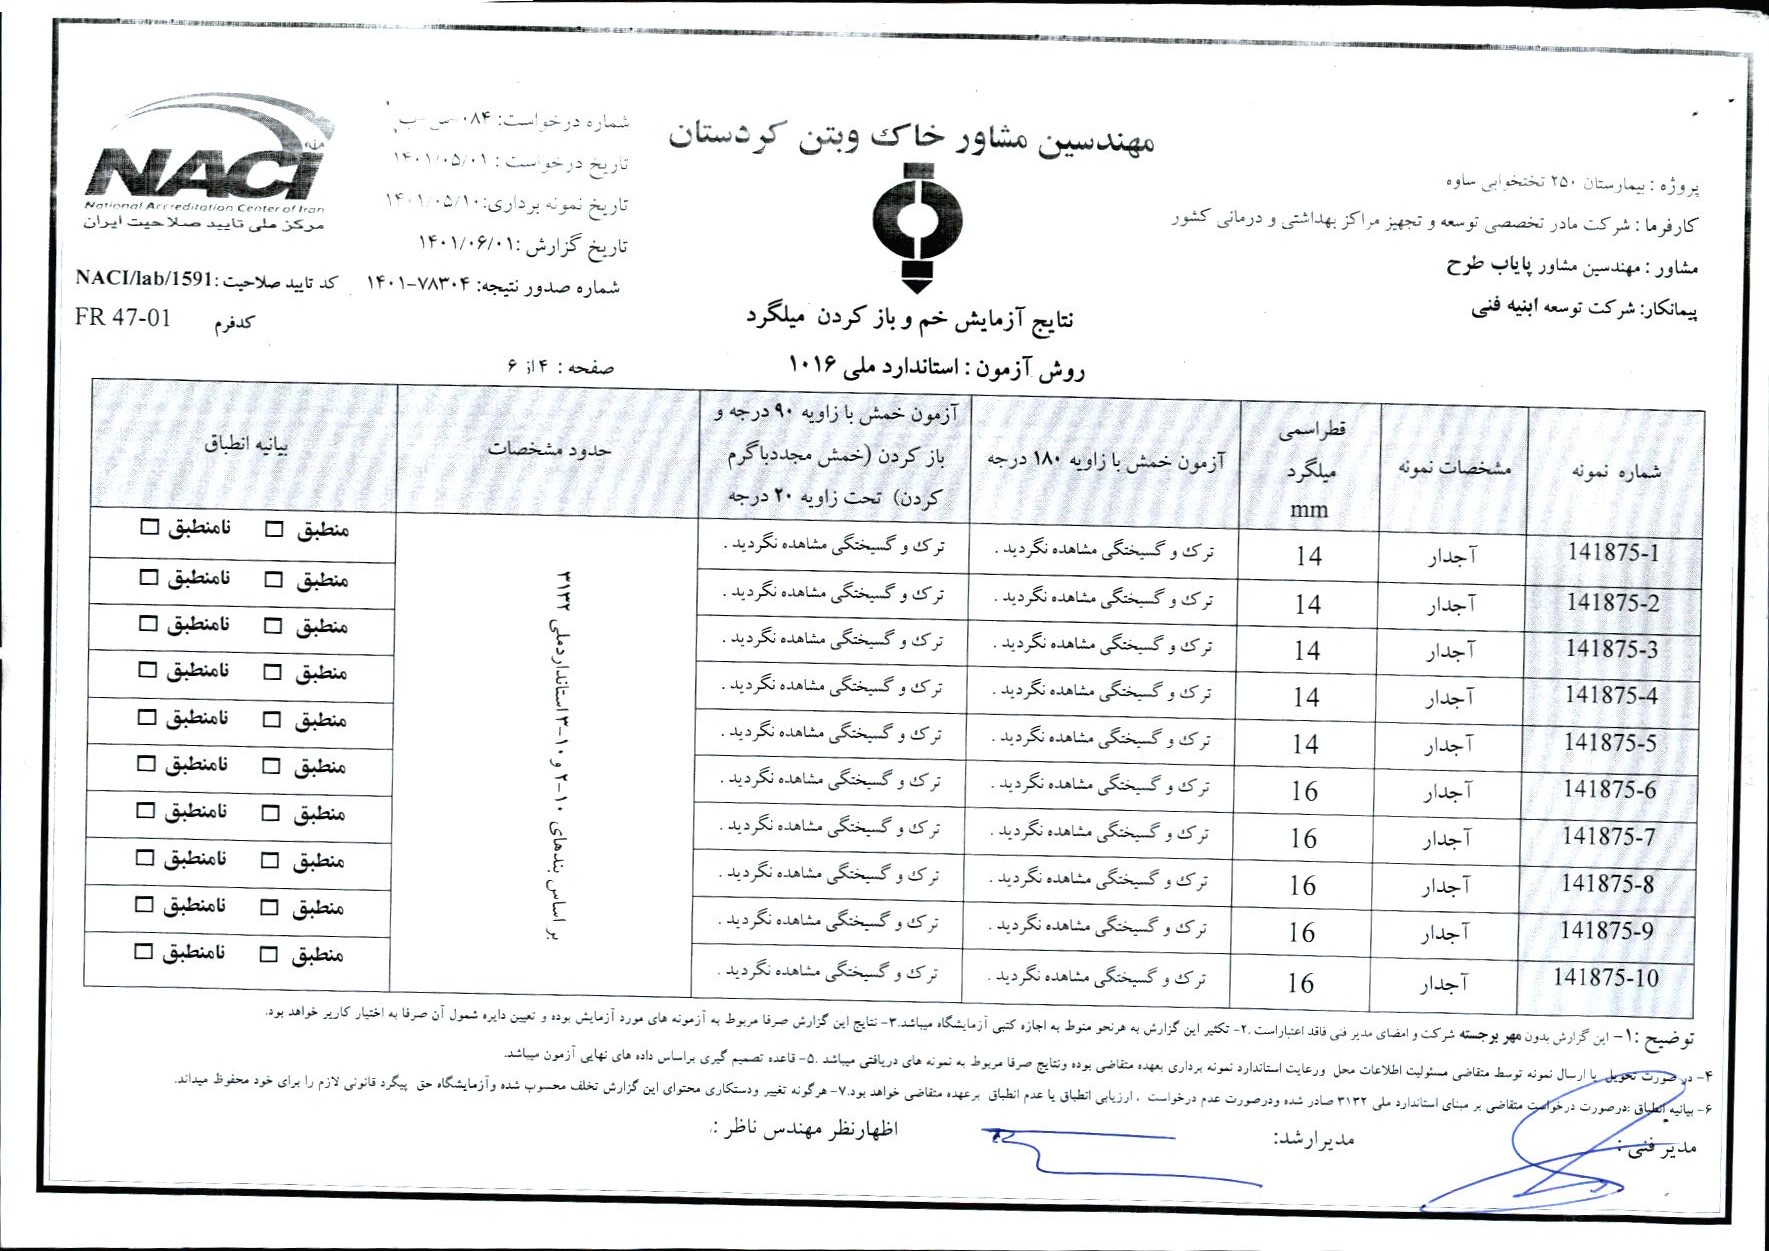 مهندسین مشاور خاک وبتن کردستان
پروژه : بیمارستان ۲۵۰ تختخوابی ساوه
کارفرما : شرکت مادر تخصصی توسعه و تجهیز مراکز بهداشتی و درمانی کشور
مشاور : مهندسین مشاور پایاب طرح
پیمانکار: شرکت توسعه ابنیه فنی
شماره درخواست: ۰۸۴-س-ب
تاریخ درخواست : ۱۴۰۱/۰۵/۰۱
تاریخ نمونه برداری: ۱۴۰۱/۰۵/۱۰
تاریخ گزارش : ۱۴۰۱/۰۶/۰۱
شماره صدور نتیجه: ۷۸۳۰۴-۱۴۰۱
NACI
National Accreditation Center of Iran
مرکز ملی تایید صلاحیت ایران
کد تایید صلاحیت :NACI/lab/1591
کدفرم FR 47-01
نتایج آزمایش خم و باز کردن میلگرد
روش آزمون : استاندارد ملی ۱۰۱۶
صفحه : ۴ از ۶
شماره نمونه
مشخصات نمونه
قطراسمی
میلگرد
mm
آزمون خمش با زاویه ۱۸۰ درجه
آزمون خمش با زاویه ۹۰ درجه و
باز کردن (خمش مجددباگرم
کردن) تحت زاویه ۲۰ درجه
حدود مشخصات
بیانیه انطباق
141875-1 آجدار 14 ترک و گسیختگی مشاهده نگردید . ترک و گسیختگی مشاهده نگردید . منطبق □ نامنطبق □
141875-2 آجدار 14 ترک و گسیختگی مشاهده نگردید . ترک و گسیختگی مشاهده نگردید . منطبق □ نامنطبق □
141875-3 آجدار 14 ترک و گسیختگی مشاهده نگردید . ترک و گسیختگی مشاهده نگردید . منطبق □ نامنطبق □
141875-4 آجدار 14 ترک و گسیختگی مشاهده نگردید . ترک و گسیختگی مشاهده نگردید . منطبق □ نامنطبق □
141875-5 آجدار 14 ترک و گسیختگی مشاهده نگردید . ترک و گسیختگی مشاهده نگردید . منطبق □ نامنطبق □
141875-6 آجدار 16 ترک و گسیختگی مشاهده نگردید . ترک و گسیختگی مشاهده نگردید . منطبق □ نامنطبق □
141875-7 آجدار 16 ترک و گسیختگی مشاهده نگردید . ترک و گسیختگی مشاهده نگردید . منطبق □ نامنطبق □
141875-8 آجدار 16 ترک و گسیختگی مشاهده نگردید . ترک و گسیختگی مشاهده نگردید . منطبق □ نامنطبق □
141875-9 آجدار 16 ترک و گسیختگی مشاهده نگردید . ترک و گسیختگی مشاهده نگردید . منطبق □ نامنطبق □
141875-10 آجدار 16 ترک و گسیختگی مشاهده نگردید . ترک و گسیختگی مشاهده نگردید . منطبق □ نامنطبق □
بر اساس بندهای ۱۰-۲ و ۱۰-۳ استانداردملی ۳۱۳۲
توضیح :۱- این گزارش بدون مهر برجسته شرکت و امضای مدیر فنی فاقد اعتباراست .۲- تکثیر این گزارش به هرنحو منوط به اجازه کتبی آزمایشگاه میباشد.۳- نتایج این گزارش صرفا مربوط به آزمونه های مورد آزمایش بوده و تعیین دایره شمول آن صرفا به اختیار کاربر خواهد بود.
۴- در صورت تحویل یا ارسال نمونه توسط متقاضی مسئولیت اطلاعات محل ورعایت استاندارد نمونه برداری بعهده متقاضی بوده ونتایج صرفا مربوط به نمونه های دریافتی میباشد .۵- قاعده تصمیم گیری براساس داده های نهایی آزمون میباشد.
۶- بیانیه انطباق :درصورت درخواست متقاضی بر مبنای استاندارد ملی ۳۱۳۲ صادر شده ودرصورت عدم درخواست ، ارزیابی انطباق یا عدم انطباق برعهده متقاضی خواهد بود.۷- هرگونه تغییر ودستکاری محتوای این گزارش تخلف محسوب شده وآزمایشگاه حق پیگرد قانونی لازم را برای خود محفوظ میداند.
مدیر فنی :
مدیرارشد:
اظهارنظر مهندس ناظر :